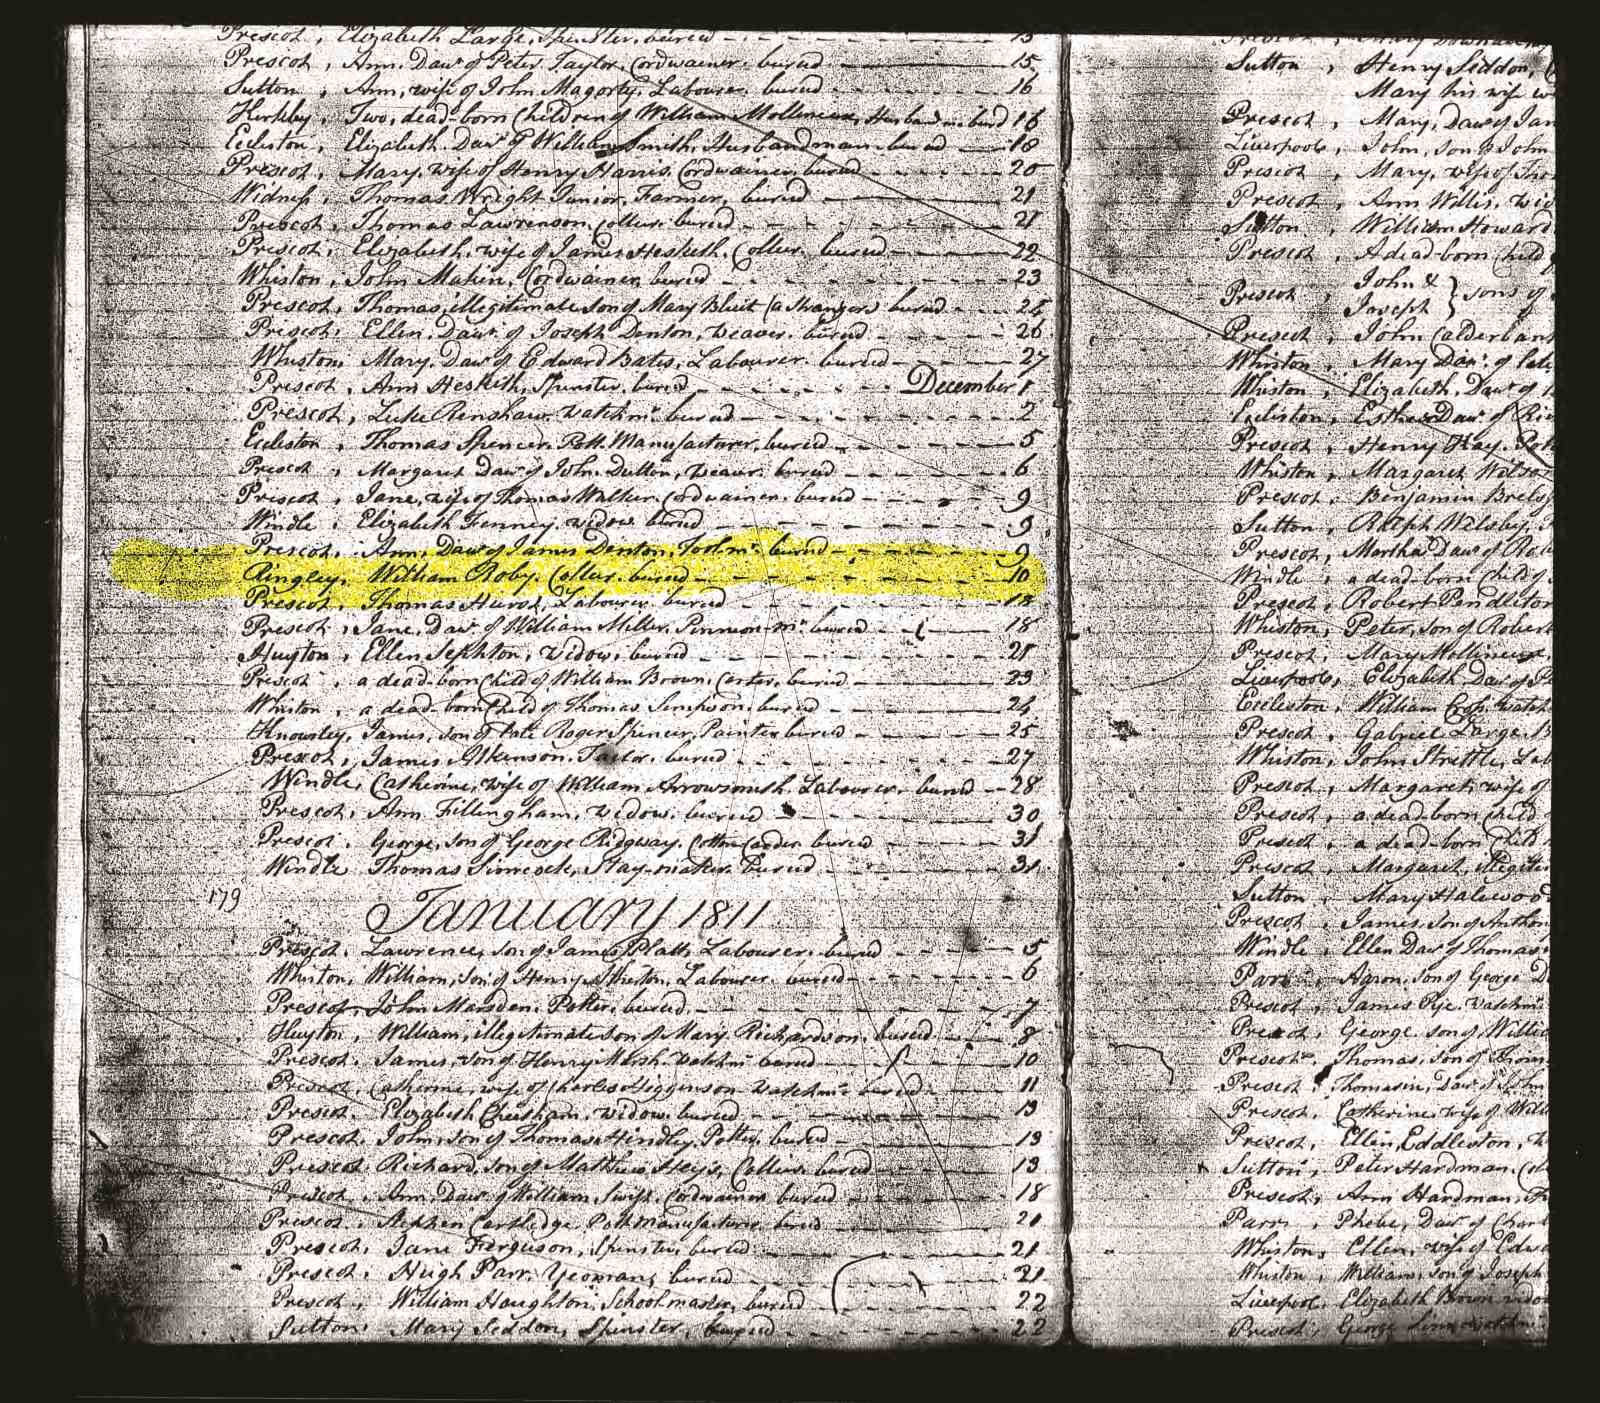 Prescot, Elizabeth Large, Spinster, buried 13
Prescot, Ann, Dawr of Peter Taylor, Cordwainer, buried 15
Sutton, Ann, wife of John Magorty, Labourer, buried 16
Kirkby, Two dead-born Children of William Mollineux, Husbandm. burd 18
Eccleston, Elizabeth Dawr of William Smith, Husbandman, buried 18
Prescot, Mary, wife of Henry Harris, Cordwainer, buried 20
Widness, Thomas Wright Junior, Farmer, buried 21
Prescot, Thomas Lawrenson, Coller, buried 21
Prescot, Elizabeth, wife of James Hesketh, Coller, buried 22
Whiston, John Makin, Cordwainer, buried 23
Prescot, Thomas, illegitimate son of Mary Bluit (a Stranger) buried 25
Prescot, Ellen, Dawr of Joseph Denton, weaver, buried 26
Whiston, Mary, Dawr of Edward Bates, Labourer, buried 27
Prescot, Ann Hesketh, Spinster, buried December 1
Prescot, Luke Renshaw, watchmr buried 2
Eccleston, Thomas Spencer, Pott Manufacturer, buried 5
Prescot, Margaret Dawr of John Dutton, weaver, buried 6
Prescot, Jane, wife of Thomas Walker, Cordwainer, buried 9
Windle, Elizabeth Fenney, widow, buried 9
Prescot, Ann, Dawr of James Denton, Toolmr buried 9
Ringley, William Roby, Coller, buried 10
Prescot, Thomas Hurst, Labourer, buried
Prescot, Jane, Dawr of William Miller, Pinneon-mr buried 18
Huyton, Ellen Sephton, widow, buried 21
Prescot, a dead-born Child of William Brown, Carter, buried 23
Whiston, a dead-born Child of Thomas Simpson, buried 24
Knowsley, James, son of late Roger Spencer, Painter buried 25
Prescot, James Atkinson, Taylor, buried 27
Windle, Catherine, wife of William Arrowsmith, Labourer, buried 28
Prescot, Ann Fillingham, widow, buried 30
Prescot, George, son of George Ridgway, Cotton Carder buried 31
Windle Thomas Simcock, Stay-maker, Buried 31
179 January 1811
Prescot, Lawrence, son of James Platt, Labourer, buried 5
Whiston, William, son of Henry, Labourer, buried 6
Prescot, John Marsden, Potter, buried 7
Huyton, William, illegitimate son of Mary Richardson, buried 8
Prescot, James, son of Henry Marsh, watchmr buried 10
Prescot, Catherine, wife of Charles Higginson watchmr buried 11
Prescot, Elizabeth Cheisham, widow, buried 13
Prescot, John, son of Thomas Hindley, Potter, buried 13
Prescot, Richard, son of Matthew Heyes, Collier, buried 13
Prescot, Ann, Dawr of William Swift, Cordwainer buried 18
Prescot, Stephen Cartledge, Pott manufacturer buried 21
Prescot, Jane Ferguson, Spinster, buried 21
Prescot, Hugh Parr, Yeoman, buried 21
Prescot, William Houghton, Schoolmaster, buried 22
Sutton, Mary Seddon, Spinster, buried 22
Sutton, Henry Seddon,
Mary his wife
Prescot, Mary, Daw of
Liverpool, John, son of John
Prescot, Mary, wife of
Prescot, Ann Willis,
Sutton, William Howard
Prescot, A dead-born Child
Prescot John & Joseph } sons of
Prescot, John Calderbank
Whiston, Mary Dawr of late
Whiston, Elizabeth, Dawr of
Eccleston, Esther Dawr of
Prescot, Henry Kay,
Whiston, Margaret
Prescot, Benjamin
Sutton, Ralph Welsby,
Prescot, Martha Dawr of
Windle, a dead-born Child of
Prescot, Robert Pendleton
Whiston, Peter, son of Robert
Prescot, Mary Mollineux,
Liverpool, Elizabeth Dawr of
Eccleston, William Cross, watch
Prescot, Gabriel Large,
Whiston, John Strettle,
Prescot, Margaret, wife of
Prescot, a dead-born Child
Prescot, a dead-born Child
Prescot, Margaret,
Sutton, Mary Halewood
Prescot, James, son of Anthon
Windle, Ellen Dawr of Thomas
Parr, Aaron, son of George
Prescot, James Pye, watchm
Prescot, George, son of
Prescot, Thomas, son of
Prescot, Thomasin, Dawr of John
Prescot, Catherine, wife of
Prescot, Ellin Eddleston,
Sutton, Peter Hardman,
Prescot, Ann Hardman,
Parr, Phebe, Dawr of
Whiston, Ellen, wife of
Whiston, William, son of Joseph
Liverpool, Elizabeth Brown
Prescot, George